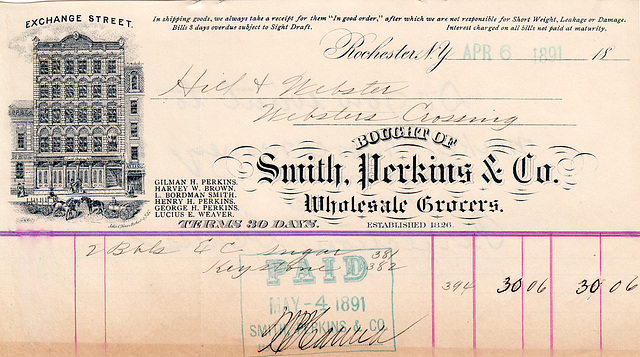 EXCHANGE STREET.
In shipping goods, we always take a receipt for them "In good order," after which we are not responsible for Short Weight, Leakage or Damage.
Bills 3 days overdue subject to Sight Draft. Interest charged on all bills not paid at maturity.
Rochester, N.Y. APR 6 1891 18
Hill & Webster
Websters Crossing
BOUGHT OF
Smith, Perkins & Co.
Wholesale Grocers.
GILMAN H. PERKINS.
HARVEY W. BROWN.
L. BORDMAN SMITH.
HENRY H. PERKINS.
GEORGE H. PERKINS.
LUCIUS E. WEAVER.
TERMS 30 DAYS.
ESTABLISHED 1826.
2 Bbls C Sugar 381
Keystone 382
394 30 06 30 06
PAID
MAY -4 1891
SMITH, PERKINS & CO.